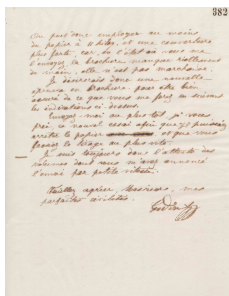 382
On peut donc employer au moins
du papier à et une couverture
plus forte, car, en l'état où vous me
l'envoyez, la brochure manque réellement
de main, elle n'est pas marchande.
Je désirerais donc une nouvelle
épreuve en brochure pour être bien
assuré de ce que vous me ferez en suivant
les indications ci dessus.
Envoyez-moi au plus tôt, je vous
prie, ce nouvel essai afin que je puisse
arrêter le papier et que vous
fassiez le tirage au plus vite.
Je suis toujours dans l'attente des
volumes dont vous m'avez annoncé
l'envoi par petite vitesse.
Veuillez agréer, Messieurs, mes
parfaites civilités.